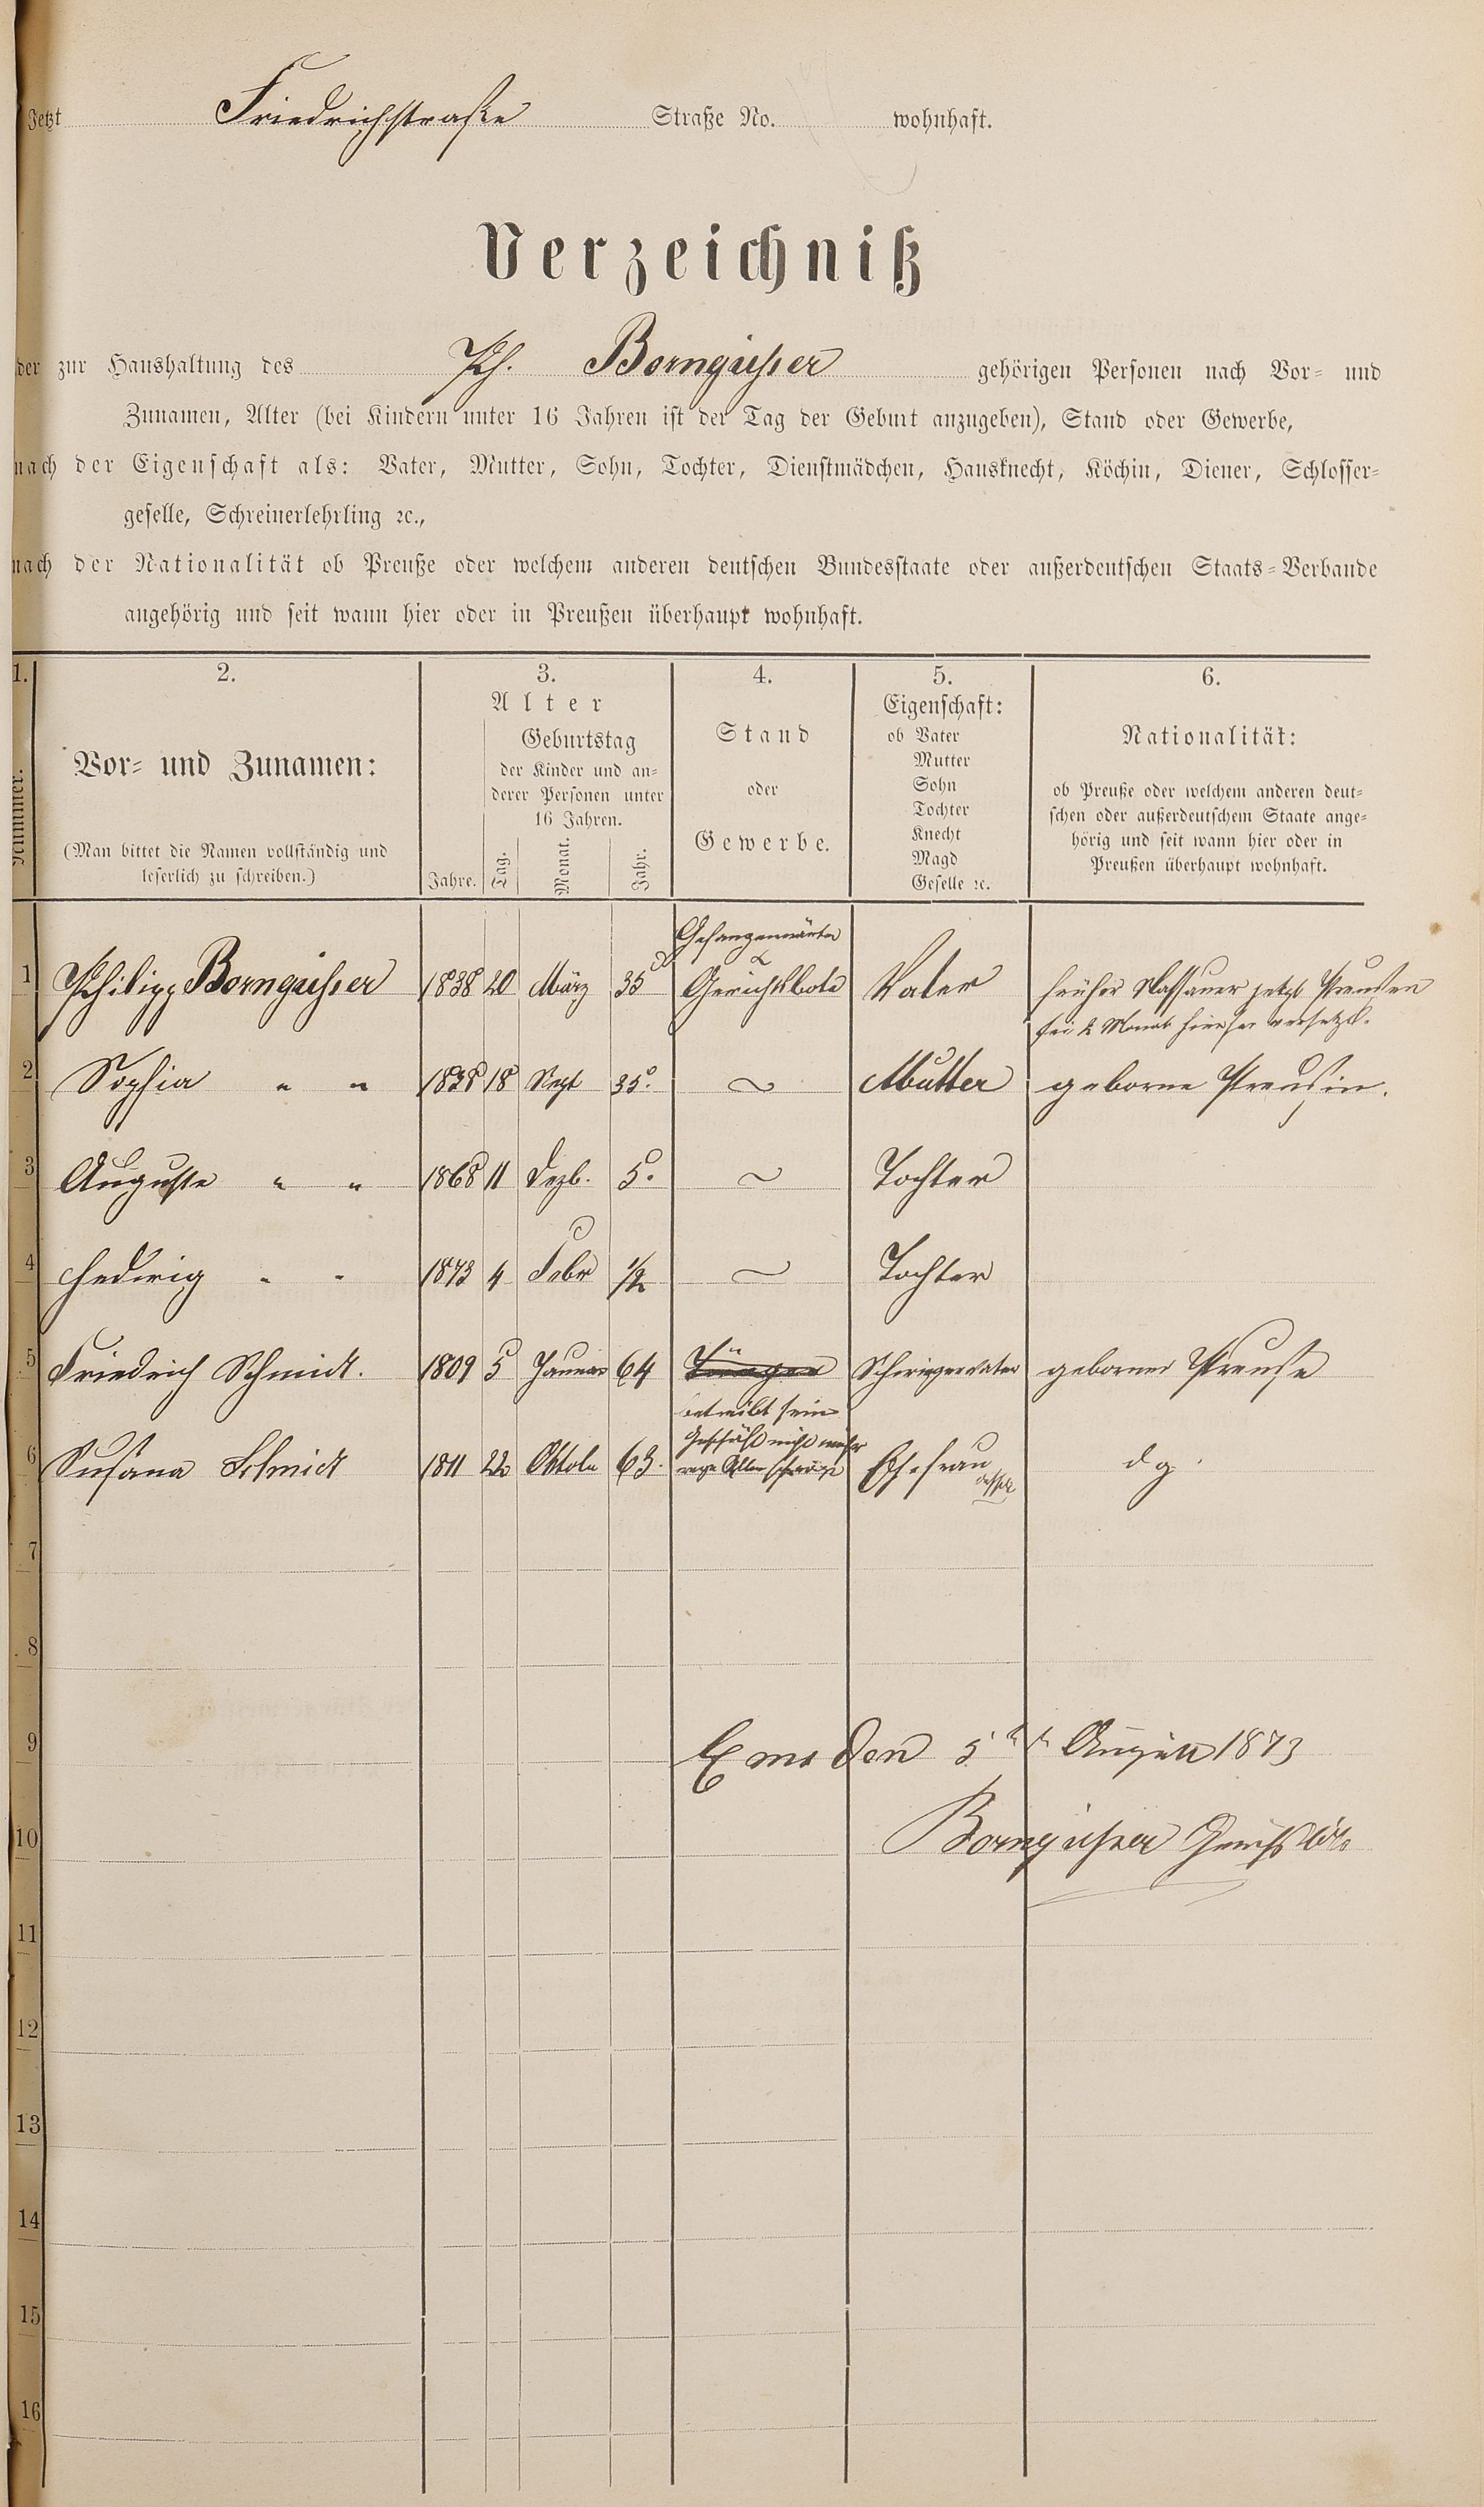 Jetzt Friedrichstraße Straße No. wohnhaft.
Verzeichniß
der zur Haushaltung des Ph. Borngießer gehörigen Personen nach Vor- und
Zunamen, Alter (bei Kindern unter 16 Jahren ist der Tag der Geburt anzugeben), Stand oder Gewerbe,
nach der Eigenschaft als: Vater, Mutter, Sohn, Tochter, Dienstmädchen, Hausknecht, Köchin, Diener, Schlosser-
geselle, Schreinerlehrling ꝛc.,
nach der Nationalität ob Preuße oder welchem anderen deutschen Bundesstaate oder außerdeutschen Staats-Verbande
angehörig und seit wann hier oder in Preußen überhaupt wohnhaft.
1. 2. 3. 4. 5. 6.
Nummer.
Vor- und Zunamen:
(Man bittet die Namen vollständig und
leserlich zu schreiben.)
Alter
Geburtstag
der Kinder und an-
derer Personen unter
16 Jahren.
Jahre. Tag. Monat. Jahr.
Stand
oder
Gewerbe.
Eigenschaft:
ob Vater
Mutter
Sohn
Tochter
Knecht
Magd
Geselle ꝛc.
Nationalität:
ob Preuße oder welchem anderen deut-
schen oder außerdeutschem Staate ange-
hörig und seit wann hier oder in
Preußen überhaupt wohnhaft.
Gefangenwärter
&
1 Philipp Borngießer 1838 20 März 35 Gerichtsbote Vater früher Nassauer jetzt Preußen
sei 2 Monat hierher versetzt.
2 Sophia " " 1838 18 Sept 35. ~ Mutter geborne Preußin.
3 Auguste " " 1868 11 Dezb. 5. ~ Tochter
4 Hedwig " " 1873 4 Febr 1/2 ~ Tochter
5 Friedrich Schmidt. 1809 5 Januar 64 Schwiegervater geborner Preuße
betreibt sein
Geschäft nicht mehr
6 Susana Schmidt 1811 22 Oktobr 63. wege Altersschwäche Ehefrau dessen dg.
7
8
9 Ems den 5ten August 1873
10 Borngießer Gerichtsbote
11
12
13
14
15
16